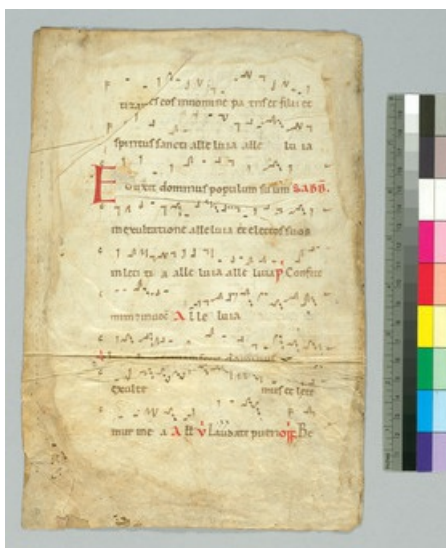 tizantes eos in nomine patris et filii et
spiritus sancti alleluia alle lu ia
Eduxit dominus populum suum SABB.
in exultatione alleluia et electos suos
in leti ti a alleluia alleluia P Confite
mini numoc A lle luia
exulte mus et lete
mur in e a A ll V Laudate pueri off Be